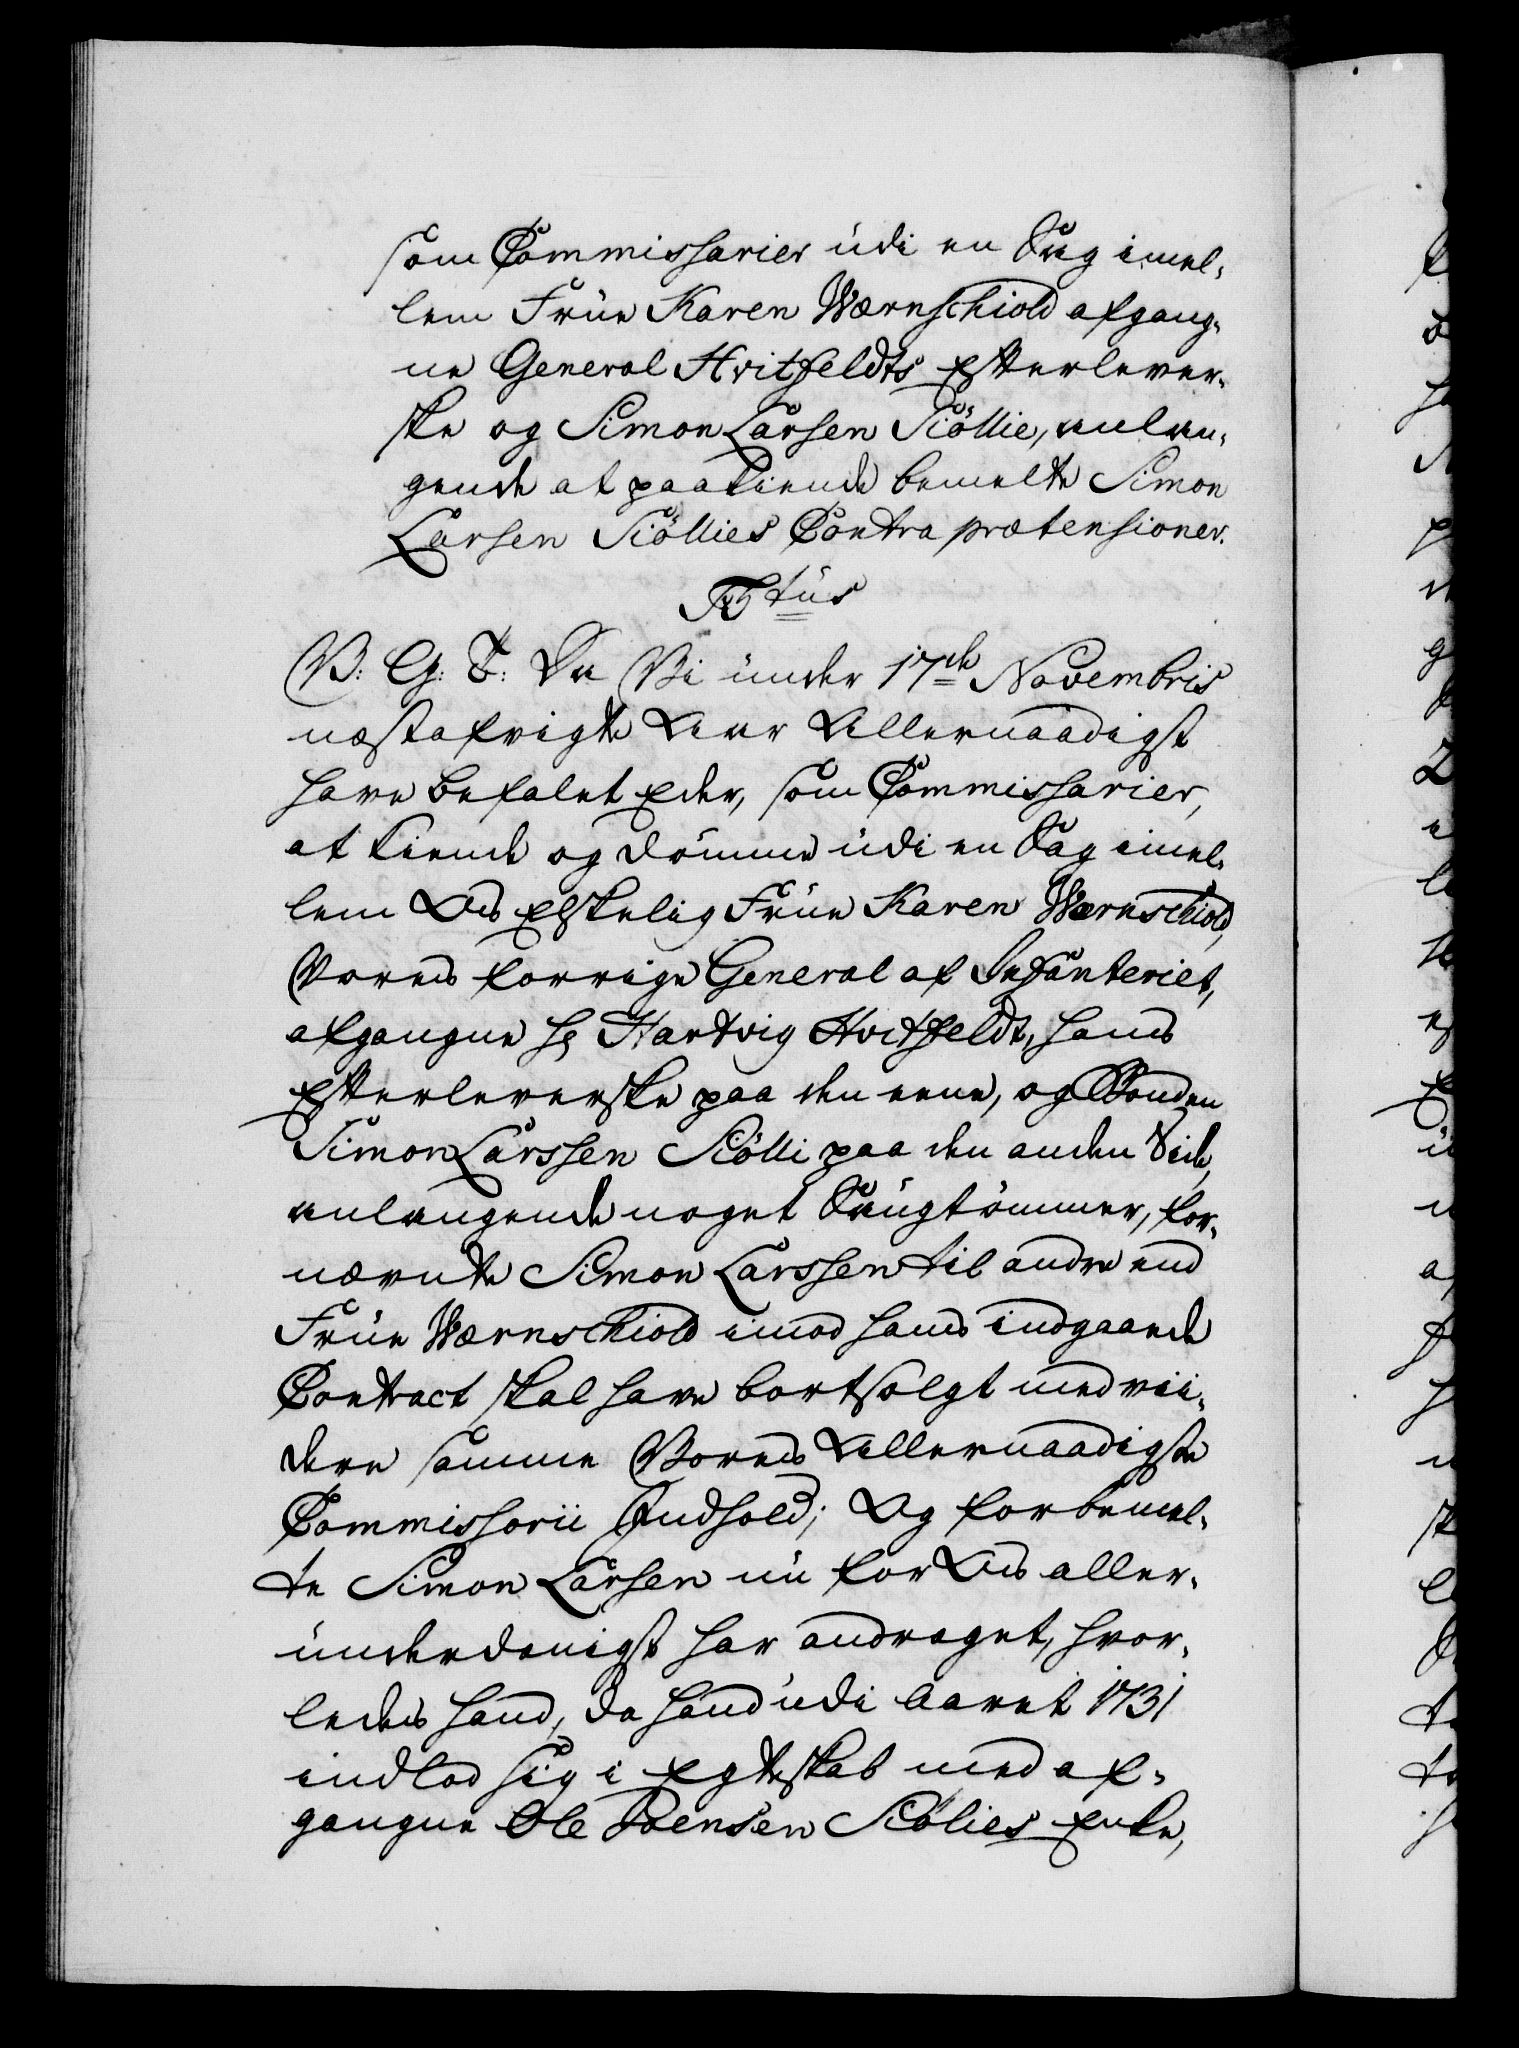 som Commissarier udi en Sag imel-
lem Frue Karen Wærnschiold afgang-
ne General Hvitfeldts Efterlever-
ske og Simon Larsen Siöllie, anlan-
gende at paakiende bemelte Simon
Larsen Siöllies Contra prætensioner.
V: G: T: Da Vi under 17de Novembris
næstafvigte Aar Allernaadigst
have befalet Eder, som Commissarier,
at kiende og dömme udi en Sag imel-
lem Os Elskelig Frue Karen Wærnschiold,
Vores forrige General af Infanteriet,
afgangne Hr Hartvig Hvitfeldt, hans
Efterleverske paa den eene, og Bonden
Simon Larssen Siölli paa den anden Side,
anlangende noget Saugtömmer, for-
nævnte Simon Larssen til andre end
Frue Wærnschiold imod hans indgaaede
Contract skal have bortsolgt med vii-
dere samme Vores Allernaadigste
Commissorii Indhold; Og forbemel-
te Simon Larsen nu for Os aller-
underdanigst har andraget, hvor-
ledes hand, da hand udi Aaret 1731
indlod sig i Egteskab med af-
gangne Ole Joensen Siölies Enke,